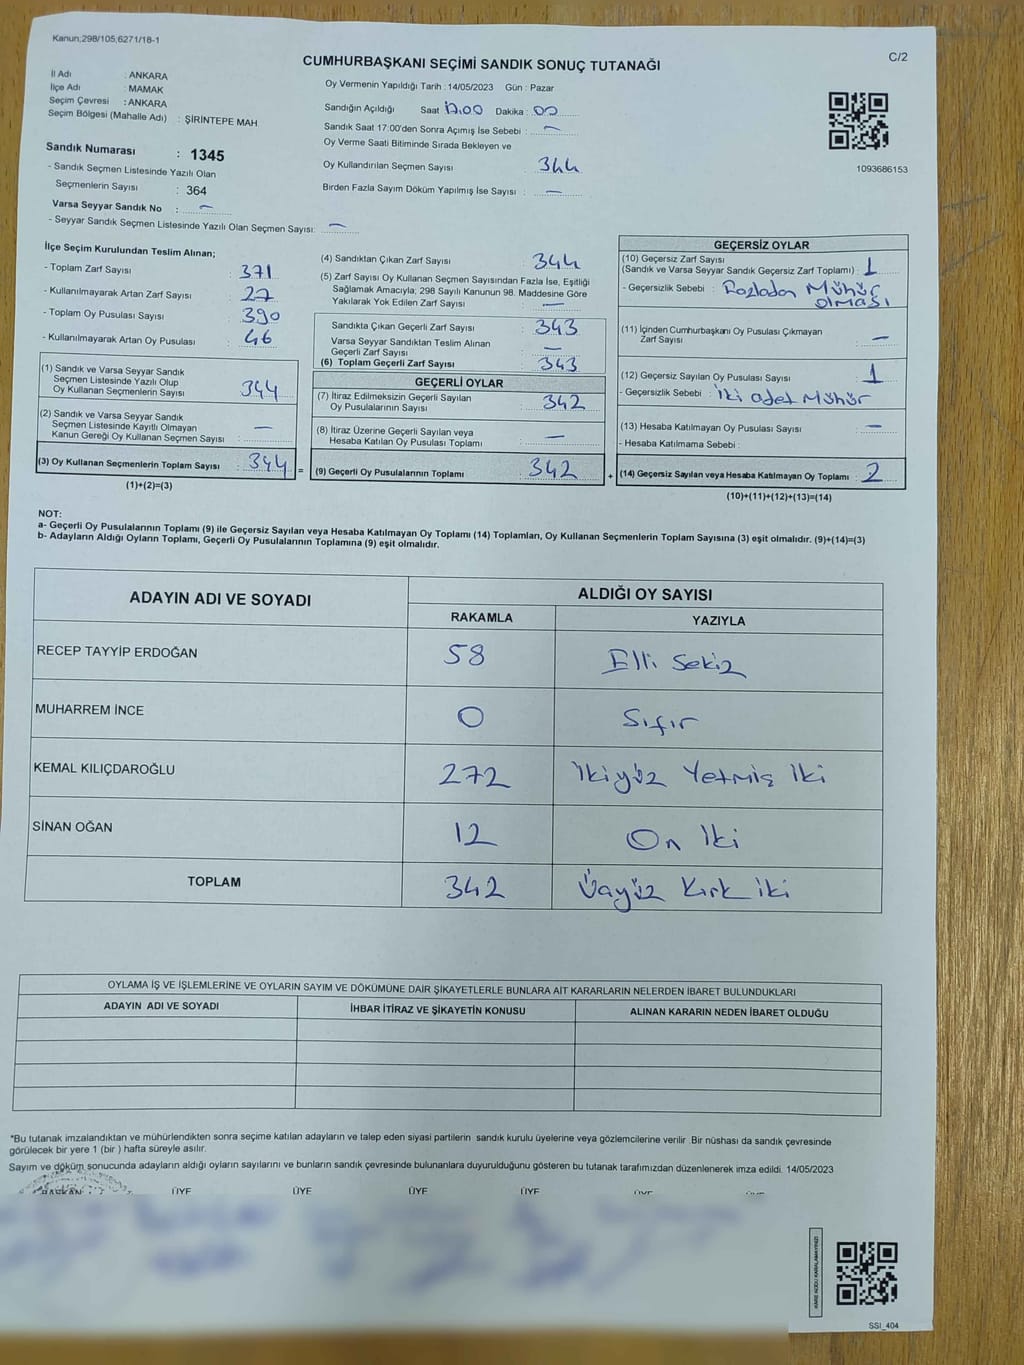 Kanun;298/105;6271/18-1
C/2
CUMHURBAŞKANI SEÇİMİ SANDIK SONUÇ TUTANAĞI
İl Adı : ANKARA
İlçe Adı : MAMAK
Seçim Çevresi : ANKARA
Seçim Bölgesi (Mahalle Adı) : ŞİRİNTEPE MAH
Oy Vermenin Yapıldığı Tarih : 14/05/2023 Gün : Pazar
Sandığın Açıldığı Saat 17.00 Dakika : 00
Sandık Saat 17:00'den Sonra Açımış İse Sebebi : —
Oy Verme Saati Bitiminde Sırada Bekleyen ve
Oy Kullandırılan Seçmen Sayısı 344
Birden Fazla Sayım Döküm Yapılmış İse Sayısı : —
1093686153
Sandık Numarası : 1345
- Sandık Seçmen Listesinde Yazılı Olan
Seçmenlerin Sayısı : 364
Varsa Seyyar Sandık No : —
- Seyyar Sandık Seçmen Listesinde Yazılı Olan Seçmen Sayısı: —
İlçe Seçim Kurulundan Teslim Alınan;
- Toplam Zarf Sayısı : 371
- Kullanılmayarak Artan Zarf Sayısı : 27
- Toplam Oy Pusulası Sayısı : 390
- Kullanılmayarak Artan Oy Pusulası : 46
(1) Sandık ve Varsa Seyyar Sandık
Seçmen Listesinde Yazılı Olup
Oy Kullanan Seçmenlerin Sayısı : 344
(2) Sandık ve Varsa Seyyar Sandık
Seçmen Listesinde Kayıtlı Olmayan
Kanun Gereği Oy Kullanan Seçmen Sayısı : —
(3) Oy Kullanan Seçmenlerin Toplam Sayısı : 344
(1)+(2)=(3)
=
(4) Sandıktan Çıkan Zarf Sayısı : 344
(5) Zarf Sayısı Oy Kullanan Seçmen Sayısından Fazla İse, Eşitliği
Sağlamak Amacıyla; 298 Sayılı Kanunun 98. Maddesine Göre
Yakılarak Yok Edilen Zarf Sayısı : —
Sandıkta Çıkan Geçerli Zarf Sayısı : 343
Varsa Seyyar Sandıktan Teslim Alınan
Geçerli Zarf Sayısı : —
(6) Toplam Geçerli Zarf Sayısı : 343
GEÇERLİ OYLAR
(7) İtiraz Edilmeksizin Geçerli Sayılan
Oy Pusulalarının Sayısı : 342
(8) İtiraz Üzerine Geçerli Sayılan veya
Hesaba Katılan Oy Pusulası Toplamı : —
(9) Geçerli Oy Pusulalarının Toplamı : 342
+
GEÇERSİZ OYLAR
(10) Geçersiz Zarf Sayısı
(Sandık ve Varsa Seyyar Sandık Geçersiz Zarf Toplamı) : 1
- Geçersizlik Sebebi : Fazladan Mühür
olması
(11) İçinden Cumhurbaşkanı Oy Pusulası Çıkmayan
Zarf Sayısı : —
(12) Geçersiz Sayılan Oy Pusulası Sayısı : 1
- Geçersizlik Sebebi : İki adet Mühür
(13) Hesaba Katılmayan Oy Pusulası Sayısı : —
- Hesaba Katılmama Sebebi :
(14) Geçersiz Sayılan veya Hesaba Katılmayan Oy Toplamı : 2
(10)+(11)+(12)+(13)=(14)
NOT:
a- Geçerli Oy Pusulalarının Toplamı (9) ile Geçersiz Sayılan veya Hesaba Katılmayan Oy Toplamı (14) Toplamları, Oy Kullanan Seçmenlerin Toplam Sayısına (3) eşit olmalıdır. (9)+(14)=(3)
b- Adayların Aldığı Oyların Toplamı, Geçerli Oy Pusulalarının Toplamına (9) eşit olmalıdır.
ADAYIN ADI VE SOYADI ALDIĞI OY SAYISI
RAKAMLA YAZIYLA
RECEP TAYYİP ERDOĞAN 58 Elli Sekiz
MUHARREM İNCE 0 Sıfır
KEMAL KILIÇDAROĞLU 272 İkiyüz Yetmiş İki
SİNAN OĞAN 12 On İki
TOPLAM 342 Üçyüz Kırk iki
OYLAMA İŞ VE İŞLEMLERİNE VE OYLARIN SAYIM VE DÖKÜMÜNE DAİR ŞİKAYETLERLE BUNLARA AİT KARARLARIN NELERDEN İBARET BULUNDUKLARI
ADAYIN ADI VE SOYADI İHBAR İTİRAZ VE ŞİKAYETİN KONUSU ALINAN KARARIN NEDEN İBARET OLDUĞU
*Bu tutanak imzalandıktan ve mühürlendikten sonra seçime katılan adayların ve talep eden siyasi partilerin sandık kurulu üyelerine veya gözlemcilerine verilir. Bir nüshası da sandık çevresinde
görülecek bir yere 1 (bir) hafta süreyle asılır.
Sayım ve döküm sonucunda adayların aldığı oyların sayılarını ve bunların sandık çevresinde bulunanlara duyurulduğunu gösteren bu tutanak tarafımızdan düzenlenerek imza edildi. 14/05/2023
BAŞKAN ÜYE ÜYE ÜYE ÜYE ÜYE ÜYE
KARE KODU KARALAMAYINIZ!
SSI_404